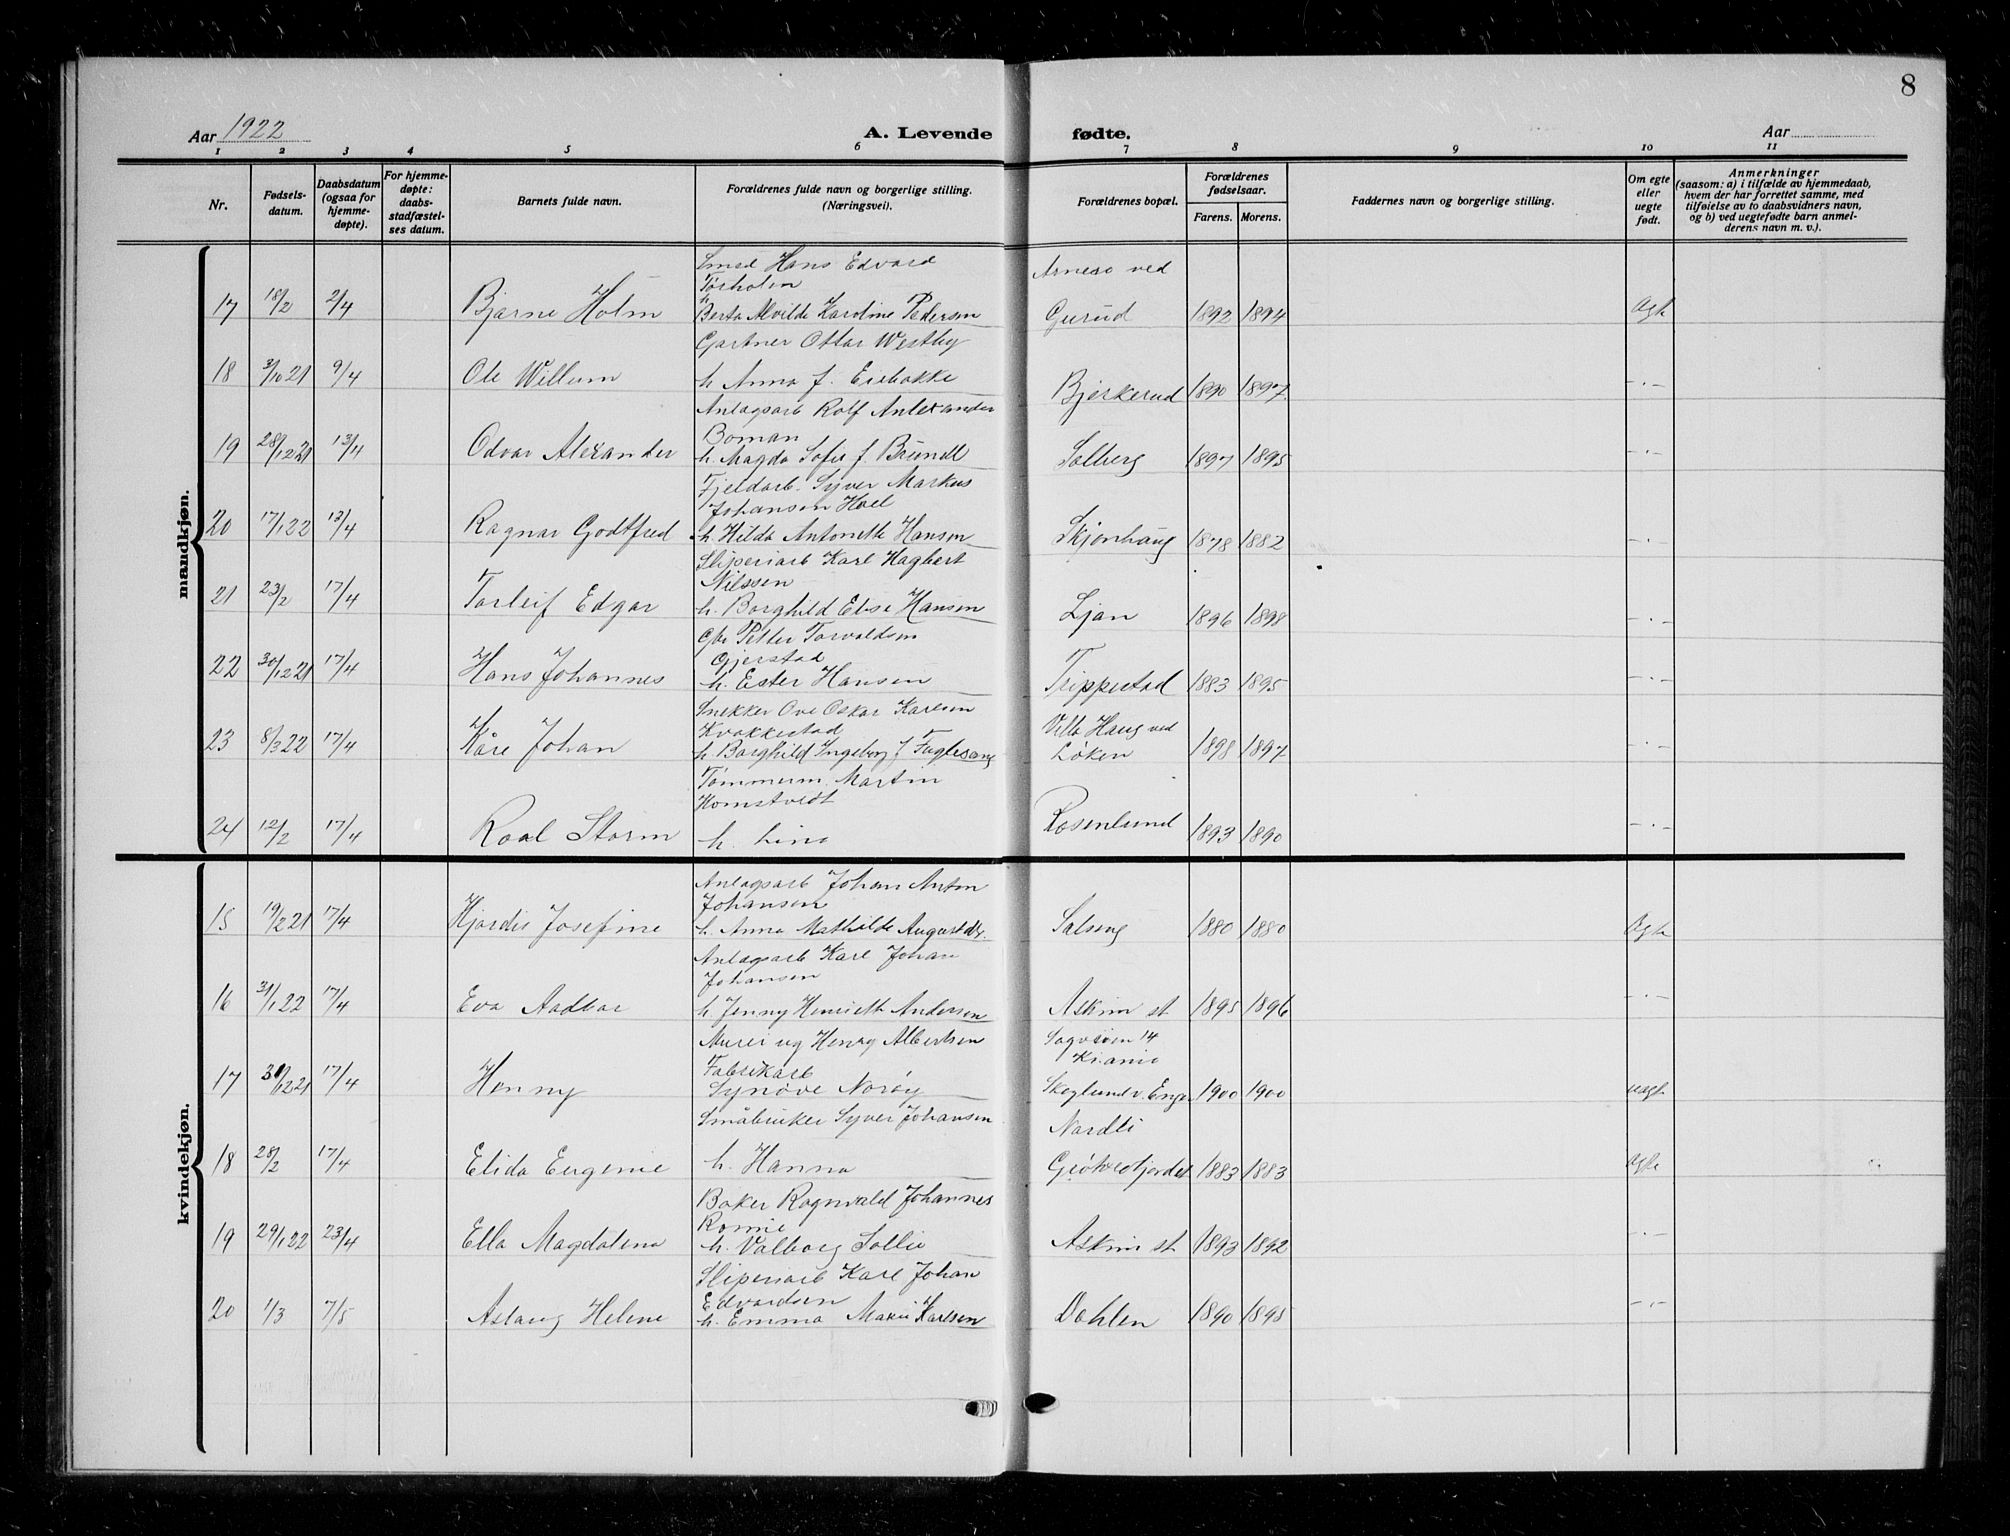 8
Aar 1922
A. Levende fødte.
Aar
1 2 3 4 5 6 7 8 9 10 11
Nr.
Fødsels-
datum.
Daabsdatum
(ogsaa for
hjemme-
døpte).
For hjemme-
døpte:
daabs-
stadfæstel-
ses datum.
Barnets fulde navn.
Forældrenes fulde navn og borgerlige stilling.
(Næringsvei).
Forældrenes bopæl.
Forældrenes
fødselsaar.
Farens. Morens.
Faddernes navn og borgerlige stilling.
Om egte
eller
uegte
født.
Anmerkninger
(saasom: a) i tilfælde av hjemmedaab,
hvem der har forrettet samme, med
tilføielse av to daabsvidners navn,
og b) ved uegtefødte barn anmel-
derens navn m. v.).
mandkjøn.
Smed Hans Edvard
Tørholen
17 18/2 2/4 Bjarne Holm Berta Alvilde Karoline Pedersen ved Gurud 1892 1894 Ægte
Gartner Ottar Westby
18 3/10 21 9/4 Ole Willum h. Anna f. Bjerkerud 1890 1897 -"-
Anlagsarb Rolf Anlexander
Boman
19 28/12 21 13/4 Odvar Alexander h. Magda Sofie f. Brundl Solberg 1897 1895 -"-
Fjeldarb. Syver Markus
Johansen Hoel
20 17/1 22 13/4 Ragnar Godtfred h. Hilda Antonette Hansen Skjønhaug 1878 1882 -"-
Sliperiarb Karl Hagbert
Nilssen
21 23/2 17/4 Torleif Edgar h. Borghild Elise Hansen Ljan 1896 1898 -"-
Gbr Petter Torvaldsen
Gjerstad
22 30/12 21 17/4 Hans Johannes h. Ester Hansen Trippestad 1883 1895 -"-
Snekker Ove Oskar Karlsen
Kvakkestad
23 8/3 22 17/4 Kåre Johan h. Borghild Ingeborg f Faglesang Villa Haug ved
Løken 1898 1897 -"-
Tømmerm. Martin
Homstvedt
24 12/2 17/4 Roal Storm h. Lina Rosenlund 1893 1890 -"-
kvindekjøn.
Anlagsarb Johan Anton
Johansen
15 19/2 21 17/4 Hjørdis Josefine h. Anna Mathilde Augustdtr. Solseng 1880 1880 Ægte
Anlagsarb Karl Johan
Johansen
16 31/1 22 17/4 Eva Aadbør h. Jenny Henriette Andersen Askim st 1895 1896 -"-
Murer ug Henry Albertsen Sagveien 14
Kr.ania
Fabrikarb
17 31/12 21 17/4 Henny Synøve Norøy Skoglund v. Enger 1900 1900 uegte
Småbruker Syver Johansen Nordli
18 28/2 17/4 Elida Eugenie h. Hanna Grøtvedtjordet 1883 1883 Ægte
Baker Ragnvald Johannes
Romie
19 29/1 22 23/4 Ella Magdalena h. Valborg Sollie Askim st 1893 1892 -"-
Sliperiarb Karl Johan
Edvardsen
20 1/3 7/5 Aslaug Helene h. Emma Marie Karlsen Dahlen 1890 1895 -"-